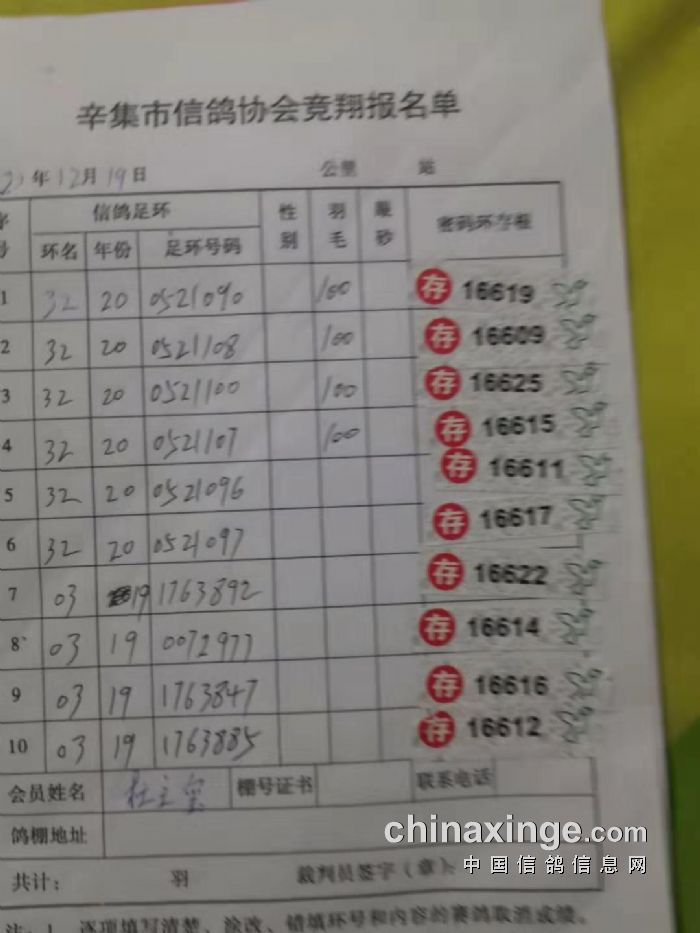 辛集市信鸽协会竞翔报名单
年12月19日 公里 站
序号 信鸽足环 性别 羽毛 最砂 密码环存根
环名 年份 足环号码
1 32 20 0521090 100 存 16619
2 32 20 0521108 100 存 16609
3 32 20 0521100 100 存 16625
4 32 20 0521107 100 存 16615
5 32 20 0521096 存 16611
6 32 20 0521097 存 16617
7 03 19 1763892 存 16622
8 03 19 0072977 存 16614
9 03 19 1763847 存 16616
10 03 19 1763885 存 16612
会员姓名 杜 棚号证书 联系电话
鸽棚地址
chinaxinge.com
中国信鸽信息网
共计: 羽 裁判员签字(章):
注:1、逐项填写清楚、涂改、错填环号和内容的赛鸽取消成绩。